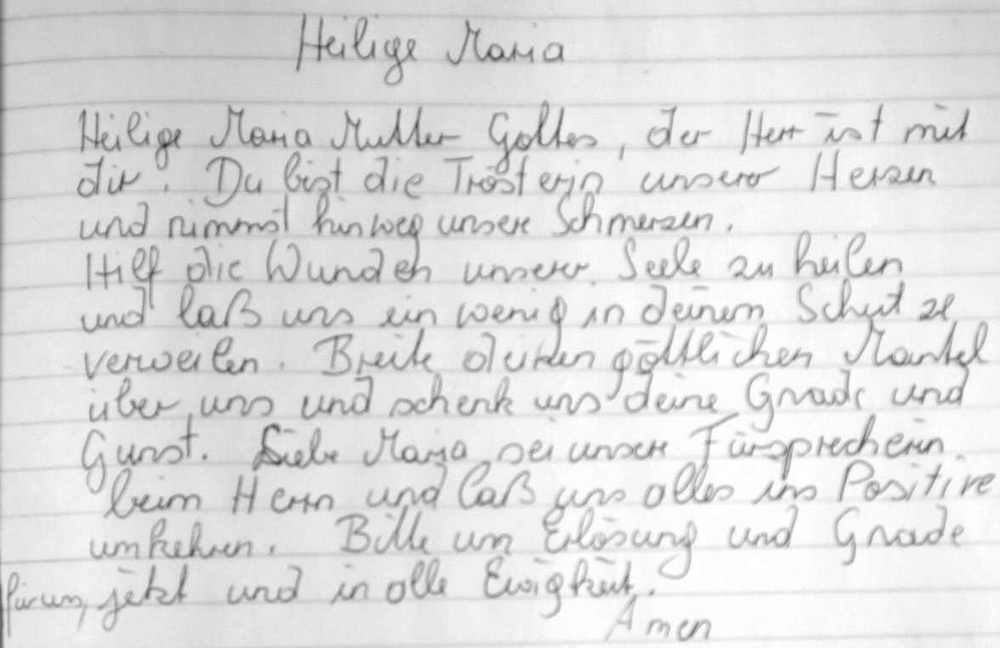 Heilige Maria
Heilige Maria Mutter Gottes, der Herr ist mit
dir. Du bist die Trösterin unserer Herzen
und nimmst hinweg unsere Schmerzen.
Hilf die Wunden unserer Seele zu heilen
und laß uns ein wenig in deinem Schutze
verweilen. Breite deinen göttlichen Mantel
über uns und schenk uns deine Gnade und
Gunst. Liebe Maria sei unsere Fürsprecherin
beim Herrn und laß uns alles ins Positive
umkehren. Bitte um Erlösung und Gnade
für uns, jetzt und in alle Ewigkeit.
Amen